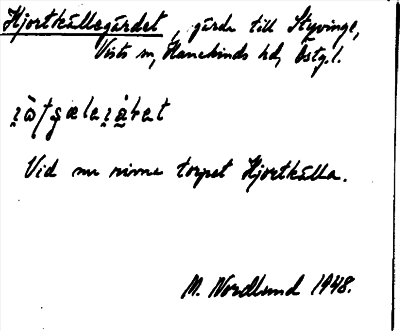 Hjortkällegärdet, gärde till Styvinge,
Vists sn, Hanekinds hd, Östg.l.
Vid nu rivna torpet Hjortkälla.
M. Nordlund 1948.